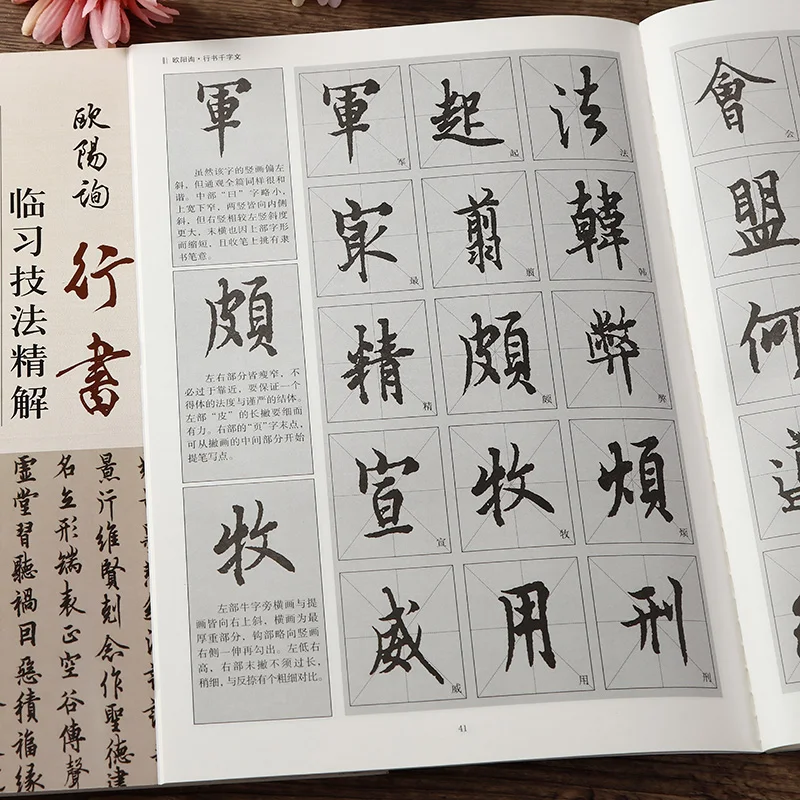 歐陽詢
行書
临习技法精解
景行維賢剋念作聖德建
名立形端表正空谷傳聲
虛堂習聽禍因惡積福緣
欧阳询·行书千字文
軍
虽然该字的竖画偏左
斜，但通观全篇同样很和
谐。中部“日”字略小，
上宽下窄，两竖皆向内侧
斜，但右竖相较左竖斜度
更大，末横也因上部字形
而缩短，且收笔上挑有隶
书笔意。
頗
左右部分皆瘦窄，不
必过于靠近，要保证一个
得体的法度与谨严的结体。
左部“皮”的长撇要细而
有力。右部的“页”字末点，
可从撇画的中间部分开始
提笔写点。
牧
左部牛字旁横画与提
画皆向右上斜，横画为最
厚重部分，钩部略向竖画
右侧一伸再勾出。左低右
高，右部末撇不须过长，
稍细，与反捺有个粗细对比。
法 法
韓 韩
弊 弊
煩 烦
刑 刑
起 起
翦 翦
頗 颇
牧 牧
用 用
軍 军
最 最
精 精
宣 宣
威 威
41
會 会
盟
何